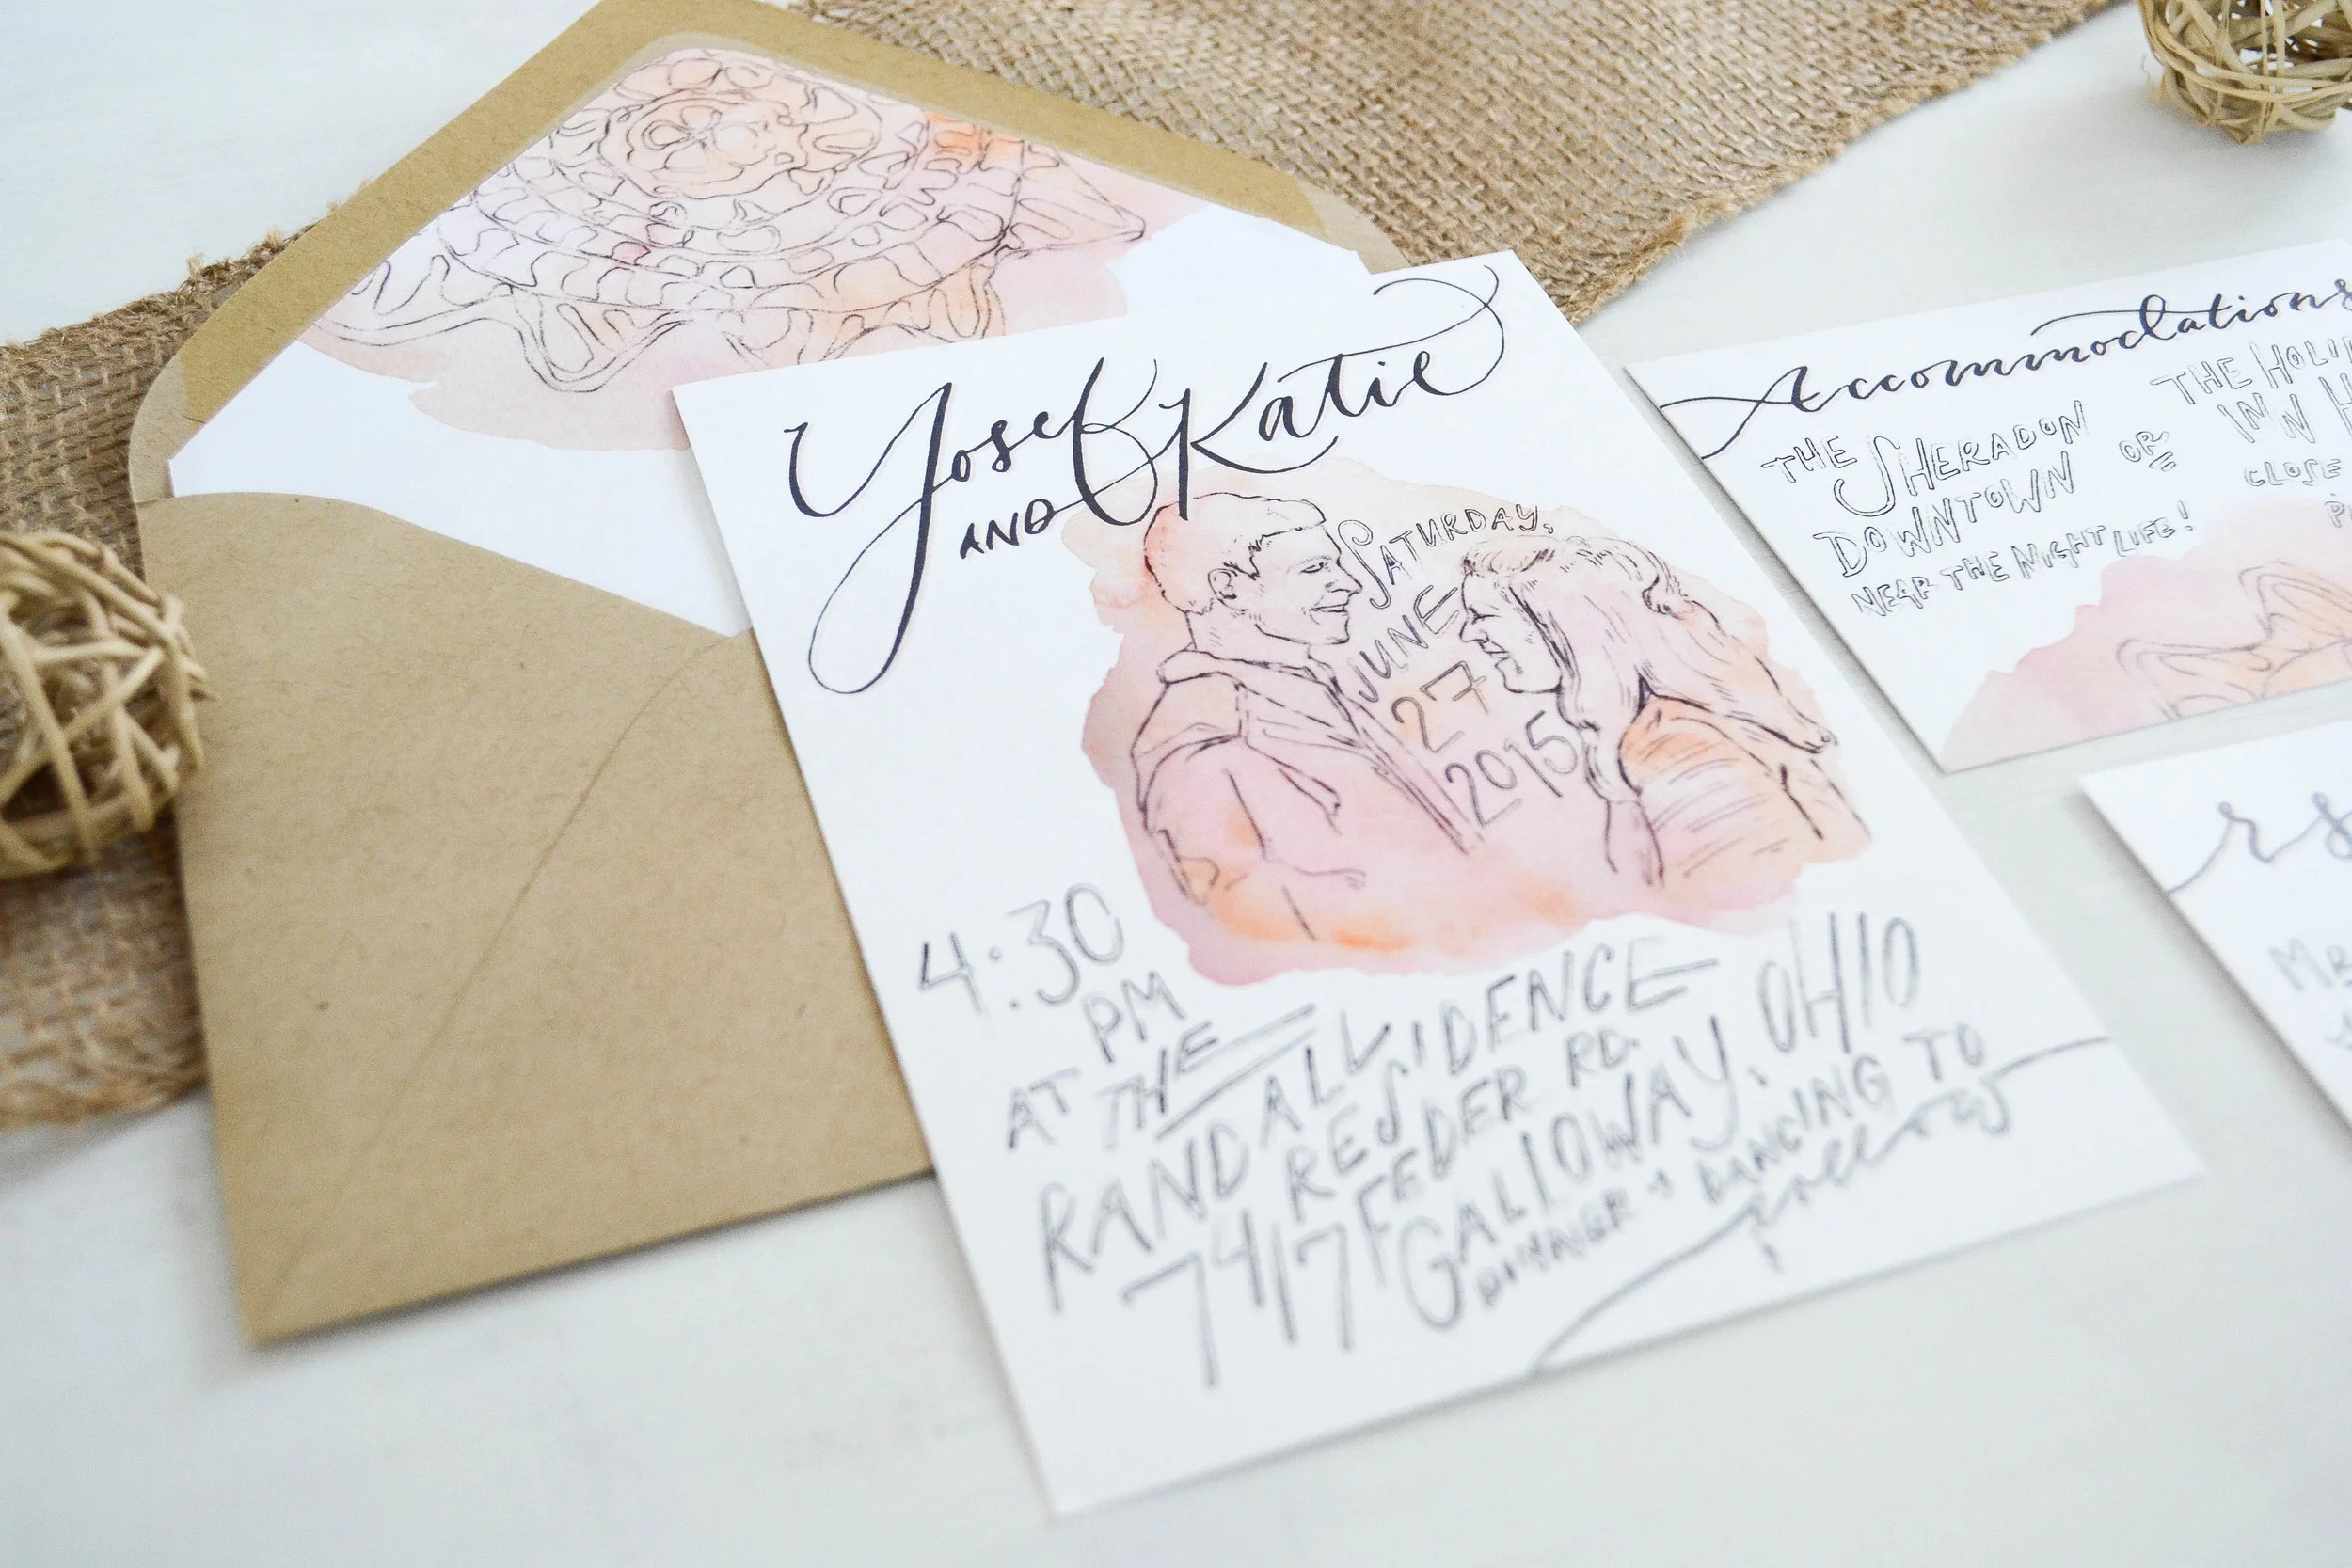 Yosef
AND Katie
SATURDAY,
JUNE
27
2015
4:30
PM
AT THE
RANDALL
RESIDENCE
7417 FEDER RD.
GALLOWAY, OHIO
DINNER + DANCING TO
follow
Accommodations
THE SHERADON
DOWNTOWN
NEAR THE NIGHT LIFE!
OR
THE
INN
CLOSE